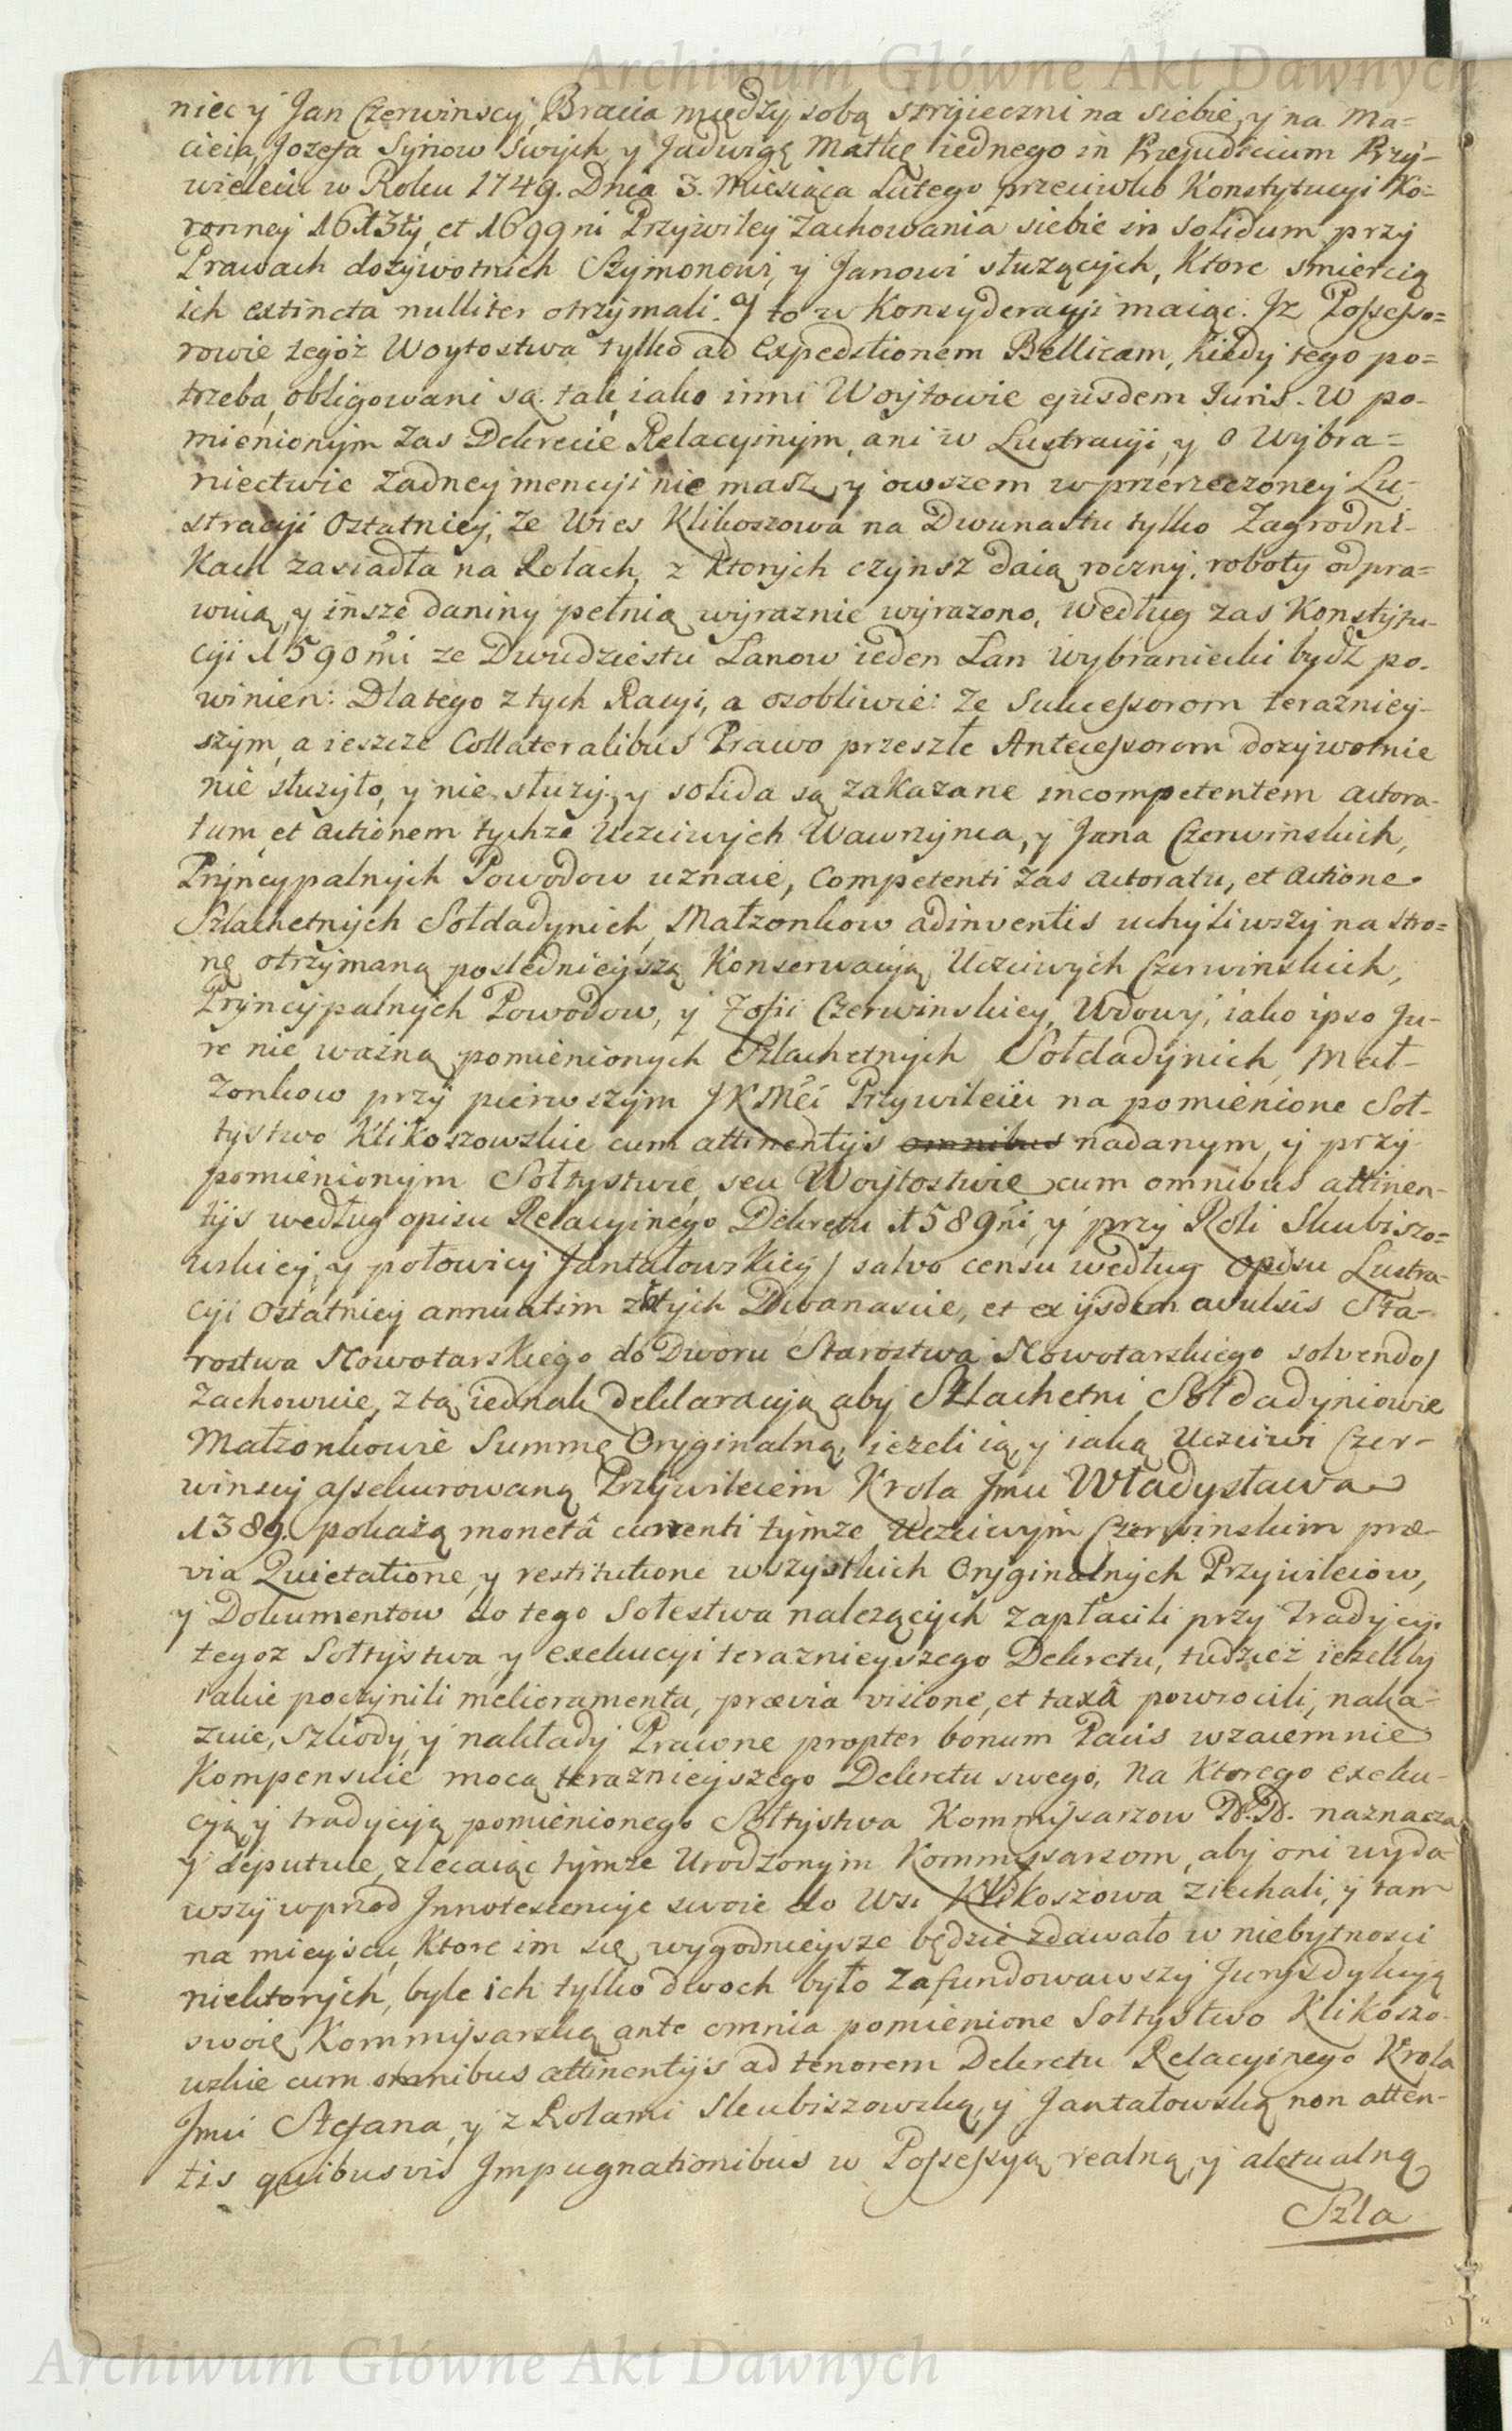 Archiwum Główne Akt Dawnych
niec y Jan Czerwinscy, Bracia między sobą stryieczni na siebie, y na Ma=
cieia, Jozefa Synow swych, y Jadwigę Matkę iednego in Præjudicium Przy-
wileiu w Roku 1749. Dnia 3. Miesiąca Lutego przeciwko Konstytucyi Ko=
ronney 1613ty, et 1699ni Przywiley zachowania siebie in solidum przy
Prawach dozywotnich Szymonowi, y Janowi słuzących, Ktore smiercią
ich extincta nulliter otrzymali. Y to w Konsyderacyi maiąc: Jz Possesso=
rowie tegoż Woytostwa tylko ad Expeditionem Bellicam, Kiedy tego po=
trzeba, obligowani są, tak, iako inni Woytowie ejusdem Juris. W po-
mienionym zas Dekrecie Relacyinym, ani w Lustracyi, y o Wybra=
niectwie Zadney mencyi nie masz, y owszem w przerzeczoney Lu-
stracyi Ostatniey, Ze Wies Klikoszowa na Dwunastu tylko Zagrodni-
Kach zasiadła na Rolach, z Ktorych czynsz daią roczny, roboty odpra=
wuią, y insze daniny pełnią wyraznie wyrazono, Według zas Konstytu-
cyi 1590mi ze Dwudziestu Lanow ieden Lan Wybraniecki bydź po-
winien: Dlatego z tych Racyi, a osobliwie: Ze Sukcessorom teraźniey-
szym, a ieszcze Collateralibus Prawo przeszłe Antecessorom dozywotnie
nie słuzyło, y nie słuzy, y solida są zakazane incompetentem actora-
tum, et actionem tychze Uczciwych Wawrzynca, y Jana Czerwinskich,
Pryncypalnych Powodow uznaie, Competenti zas actoratu, et actione
Szlachetnych Sołdadynich, Małzonkow adinventis uchyliwszy na stro=
nę otrzymaną posledniejszą Konserwacyą Uczciwych Czerwinskich,
Pryncypalnych Powodow, y Zofii Czerwinskiey, Wdowy, iako ipso Ju-
re nie ważną pomienionych Szlachetnych Sołdadynich, Mał-
zonkow przy pierwszym JKMci Przywileiu na pomienione Soł-
tystwo Klikoszowskie cum attinentijs omnibus nadanym, y przy
pomienionym Sołtystwie, seu Woytostwie cum omnibus attinen-
tijs według opisu Relacyinego Dekretu 1589ni, y przy Roli Skubiszo=
wskiey, y połowicy Jantałowskiey / salvo censu według opisu Lustra-
cyi Ostatniey annuatim złłtych Dwanascie, et ex ijsdem avulsis Sta-
rostwa Nowotarskiego do Dworu Starostwa Nowotarskiego solvendo /
zachowuie, z tą iednak deklaracyą, aby Szlachetni Sołdadyniowie
Małzonkowie Summę Oryginalną, ieżeli ią, y iaką Uczciwi Czer-
winscy assekurowaną Przywileiem Krola Jmci Władysława
1389. pokażą monetâ currenti tymze Uczciwym Czerwinskim præ-
via Quietatione, y restitutione wszystkich Oryginalnych Przywileiow,
y Dokumentow do tego Sołestwa nalezących zapłacili przy Tradycyi
tegoz Sołtystwa, y exekucyi teraznieyszego Dekretu, tudziez iezeliby
iakie poczynili melioramenta, prævia visione, et taxâ powrocili, naka-
zuie, Szkody, y nakłady Prawne propter bonum Pacis wzaiemnie
Kompensuie mocą teraznieyszego Dekretu swego, Na Ktorego exeku-
cyą, y tradycyą pomienionego Sołtystwa Kommissarzow W.W. naznacza,
y deputuie, zlecaiąc tymze Urodzonym Kommissarzom, aby oni wyda-
wszy wprzod Innotescencye swoie do Wsi Klikoszowa ziechali, y tam
na mieyscu, Ktore im się wygodnieysze będzie zdawało w niebytnosci
niektorych, byle ich tylko dwoch było zafundowawszy Jurysdykcyą
swoię Kommissarską ante omnia pomienione Sołtystwo Klikoszo-
wskie cum omnibus attinentijs ad tenorem Dekretu Relacyinego Krola
Jmci Stefana, y z Rolami Skubiszowską, y Jantałowską non atten-
tis quibusvis Impugnationibus w Possessyą realną, y aktualną
Szla
Archiwum Główne Akt Dawnych